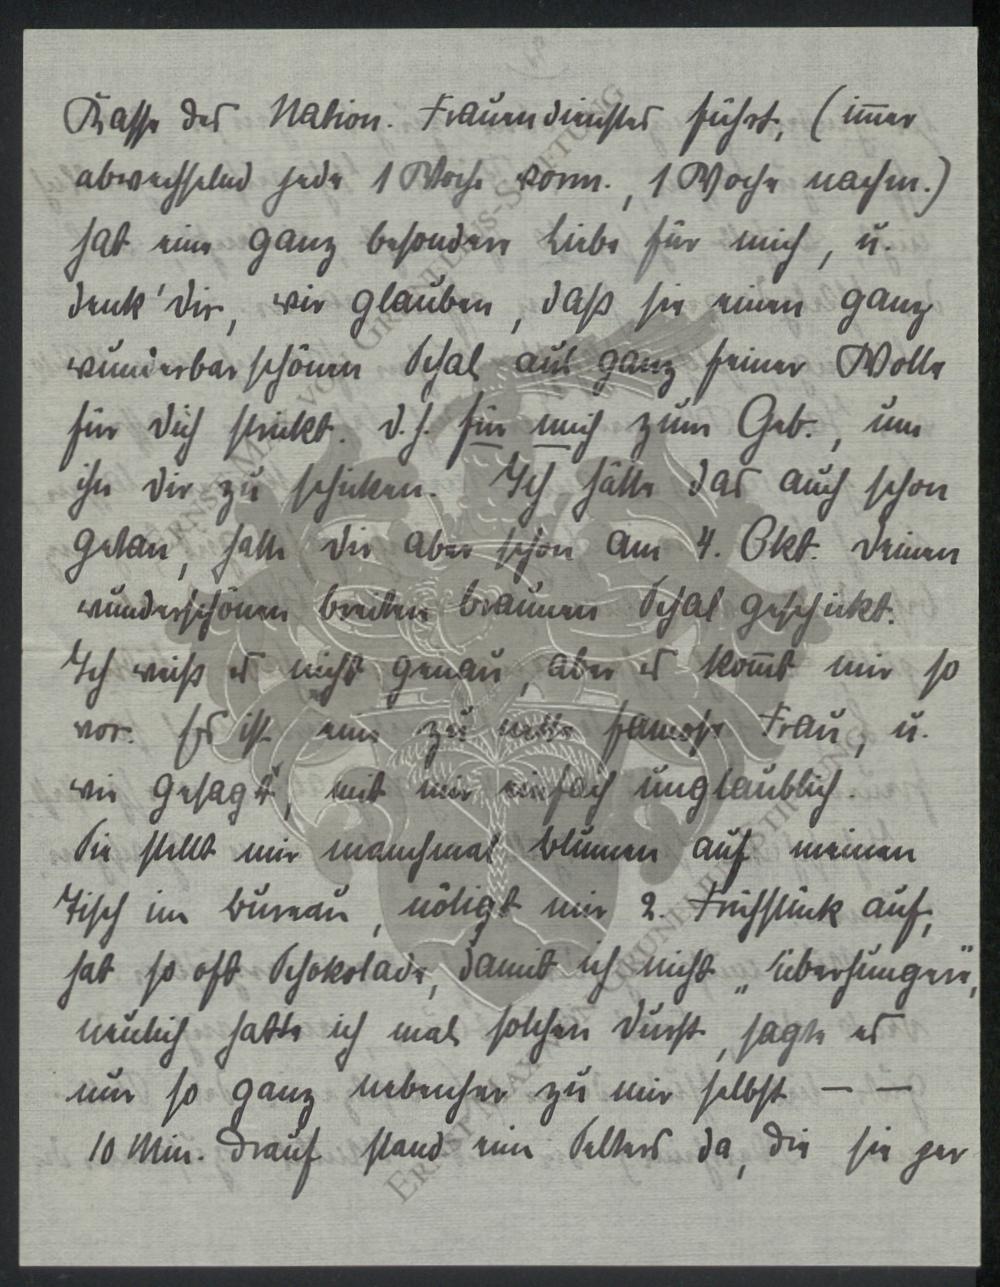 Kasse des Nation. Frauendienstes führt, (im̅er
abwechselnd jede 1 Woche vorm., 1 Woche nachm.)
hat eine ganz besondere Liebe für mich, u.
denk' dir, wir glauben, daß sie einen ganz
wunderbar schönen Schal aus ganz feiner Wolle
für dich strickt. d.h. für mich zum Geb., um
ihn dir zu schicken. Ich hätte das auch schon
getan, hatte dir aber schon am 4. Okt. deinen
wunderschönen breiten braunen Schal geschickt.
Ich weiß es nicht genau, aber es kom̅t mir so
vor. Es ist eine zu nette famose Frau, u.
wie gesagt, mit mir einfach unglaublich.
Sie stellt mir manchmal Blumen auf meinen
Tisch im Bureau, nötigt mir 2. Frühstück auf,
hat so oft Schokolade, damit ich nicht „überhungere",
neulich hatte ich mal solchen Durst, sagte es
nur so ganz nebenher zu mir selbst — —
10 Min. drauf stand eine Selters da, die sie per
ERNST MAX VON GRUNELIUS-STIFTUNG
ERNST MAX VON GRUNELIUS-STIFTUNG